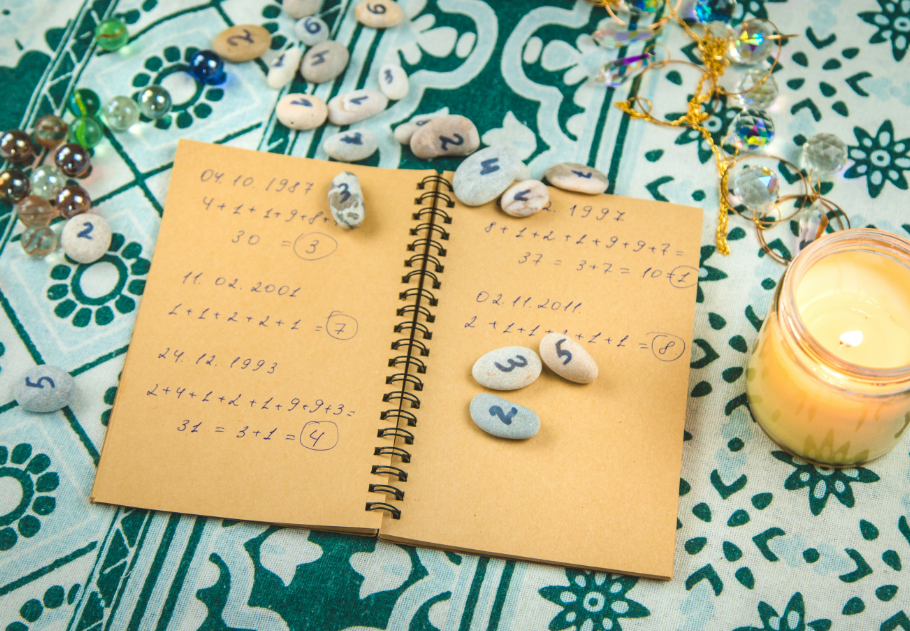 6
6
2
3
2
4
3
2
5
04.10.1987
4+1+1+9+8+
30 = 3
11.02.2001
1+1+2+2+1 = 7
24.12.1993
2+4+1+2+1+9+9+3=
31 = 3+1 = 4
1997
8+1+2+1+9+9+7=
37 = 3+7 = 10 = 1
02.11.2011.
2+1+1+ +1+1 = 8
3 5
2